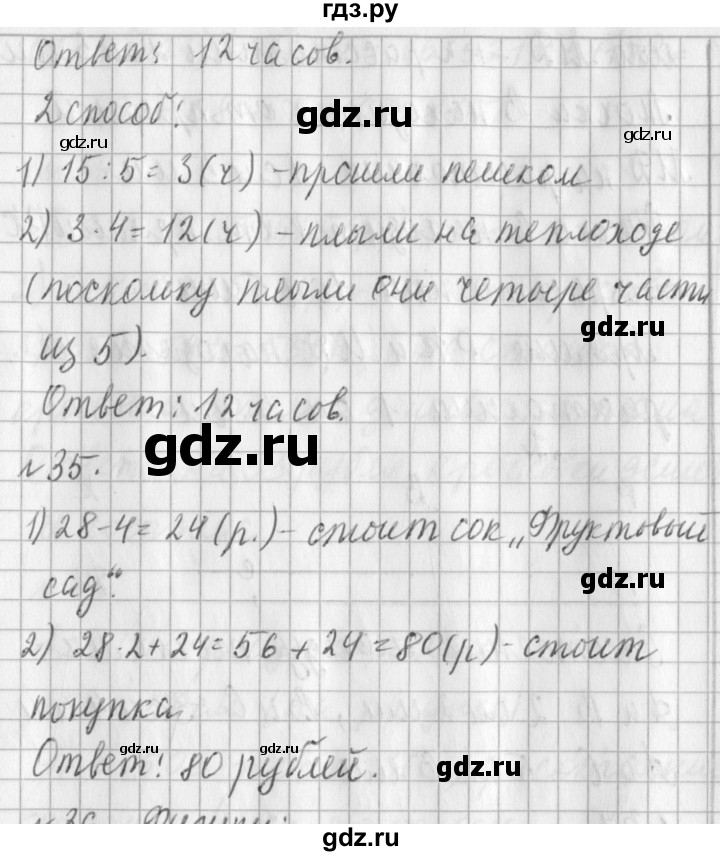 гдз.ру
Ответ: 12 часов.
2 способ:
gdz.ru
gdz.ru
gdz.ru
1) 15 : 5 = 3 (ч) – прошли пешком
2) 3 · 4 = 12 (ч) – плыли на теплоходе
(поскольку плыли они четыре части
из 5).
gdz.ru
Ответ: 12 часов.
gdz.ru
№35.
1) 28 - 4 = 24 (р.) – стоит сок „Фруктовый
сад“.
gdz.ru
2) 28 · 2 + 24 = 56 + 24 = 80 (р) – стоит
покупка.
gdz.ru
gdz.ru
Ответ: 80 рублей.
gdz.ru
gdz.ru